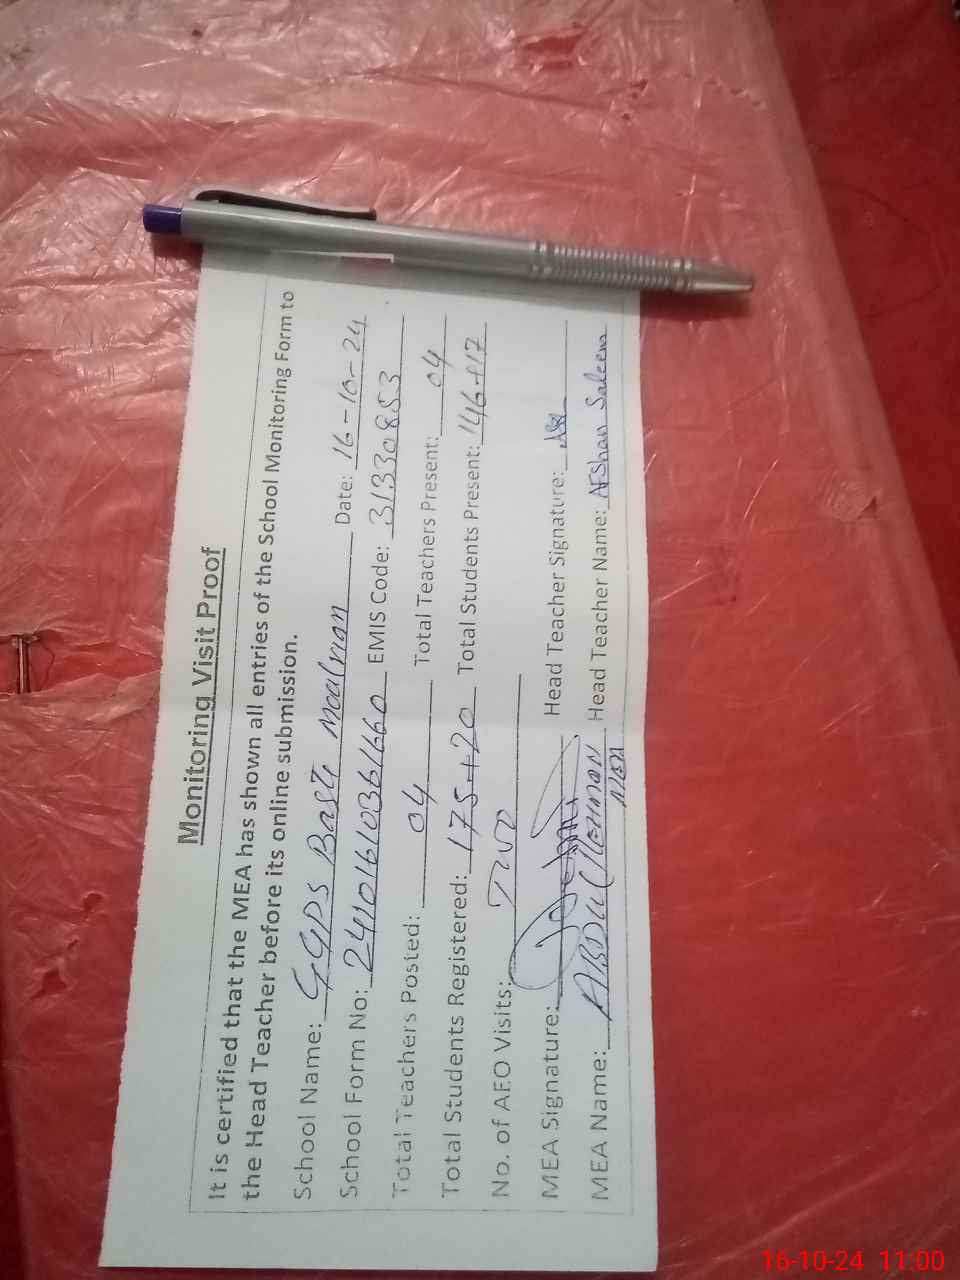 Monitoring Visit Proof
It is certified that the MEA has shown all entries of the School Monitoring Form to
the Head Teacher before its online submission.
School Name: GGPS Basti Maalnan Date: 16-10-24
School Form No: 24101610361660 EMIS Code: 31330853
Total Teachers Posted: 04 Total Teachers Present: 04
Total Students Registered: 175+20 Total Students Present: 146+17
No. of AEO Visits: Two
MEA Signature: Head Teacher Signature:
MEA Name: ABDUL REHMAN Head Teacher Name: AFShan Saleem
MEA
16-10-24 11:00